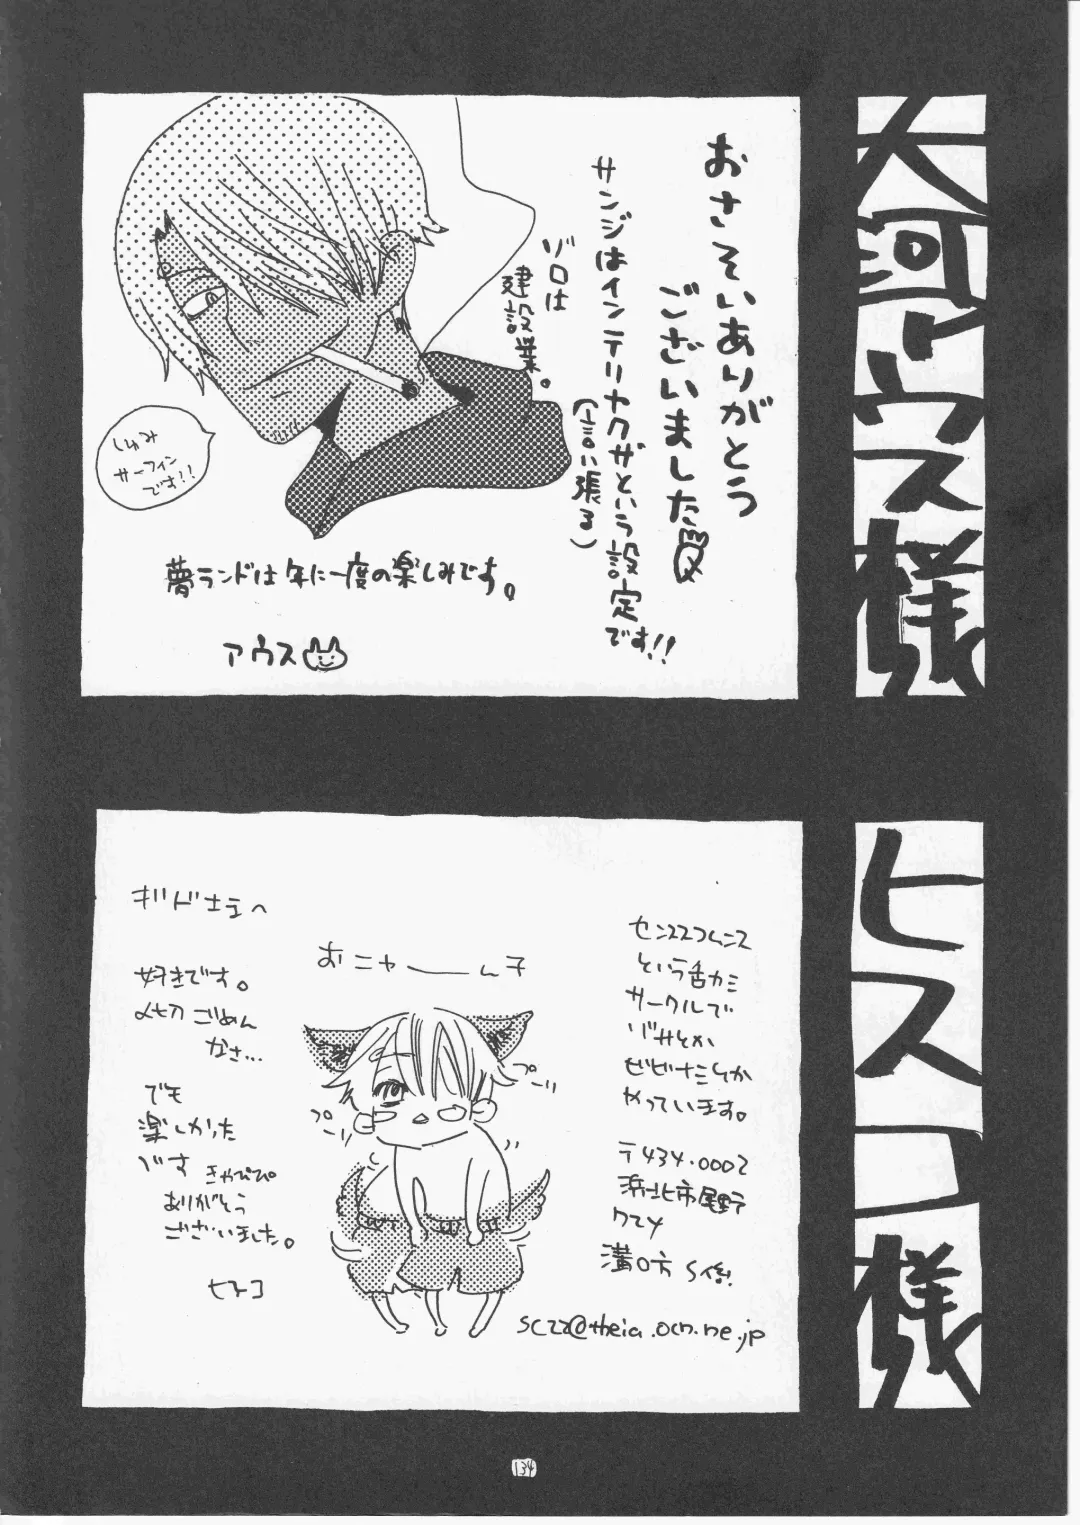 大河アウス様
おさそいありがとう
ございました
サンジはインテリヤクザという設定です!!
(言い張る)
ゾロは
建設業。
しじみ
サーフィン
です!!
夢ランドは年に一度の楽しみです。
アウス
ヒスコ様
センススフムニス
サークルで
ゾサとか
ビビナミとか
やっています。
〒434-0002
浜北市尾野
溝口方 S係
sczz@theia.ocn.ne.jp
おニャーーん子
プーリ
プーリ
ギドさまへ
好きです。
〆切ごめん
なさ…
でも
楽しかった
です きゃぴぴ
ありがとう
ございました。
ヒスコ
134